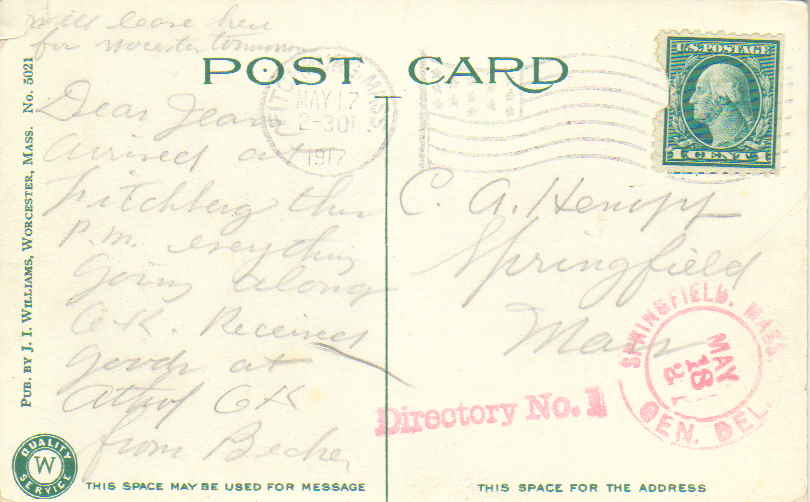 will leave here
for Worcester tomorrow
POST CARD
U.S. POSTAGE
1 CENT 1
MASS
MAY 17
2-30 P
1917
Dear
Arrived at
Fitchberg this
P.M. everything
going along
O.K. Received
goods at
Athol OK
from Becher
C. A. Hempf
Springfield
Mass
Directory No. 1
SPRINGFIELD, MASS.
MAY
18
GEN. DEL.
PUB. BY J. I. WILLIAMS, WORCESTER, MASS. No. 5021
QUALITY
W
SERVICE
THIS SPACE MAY BE USED FOR MESSAGE
THIS SPACE FOR THE ADDRESS